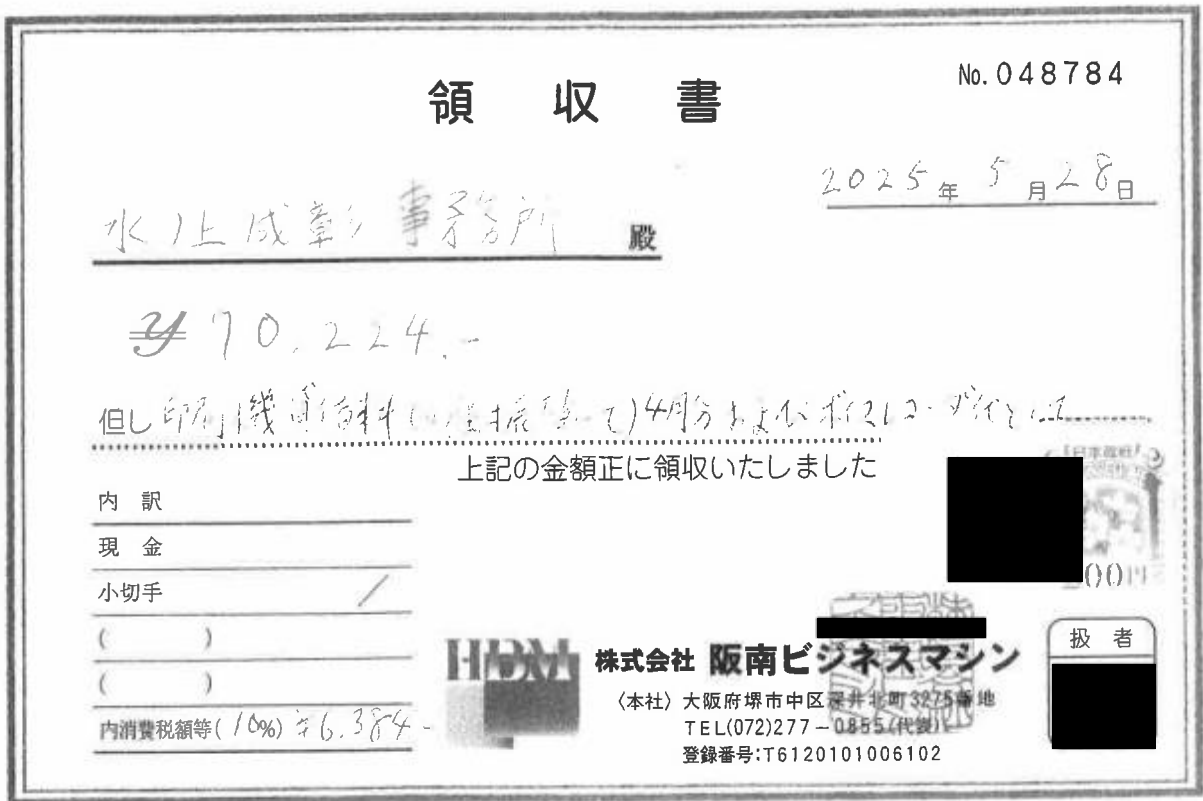 No.048784
領 収 書
2025年 5月28日
水ノ上成彰事務所 殿
¥70,224.-
但し 印刷機賃借料 4月分およびボイスレコーダ代として
上記の金額正に領収いたしました
内 訳
現 金
小切手
( )
( )
内消費税額等(10%) ¥6,384-
日本政府
200円
HBM
株式会社 阪南ビジネスマシン
〈本社〉大阪府堺市中区深井北町3275番地
TEL(072)277-0855(代表)
登録番号:T6120101006102
扱 者